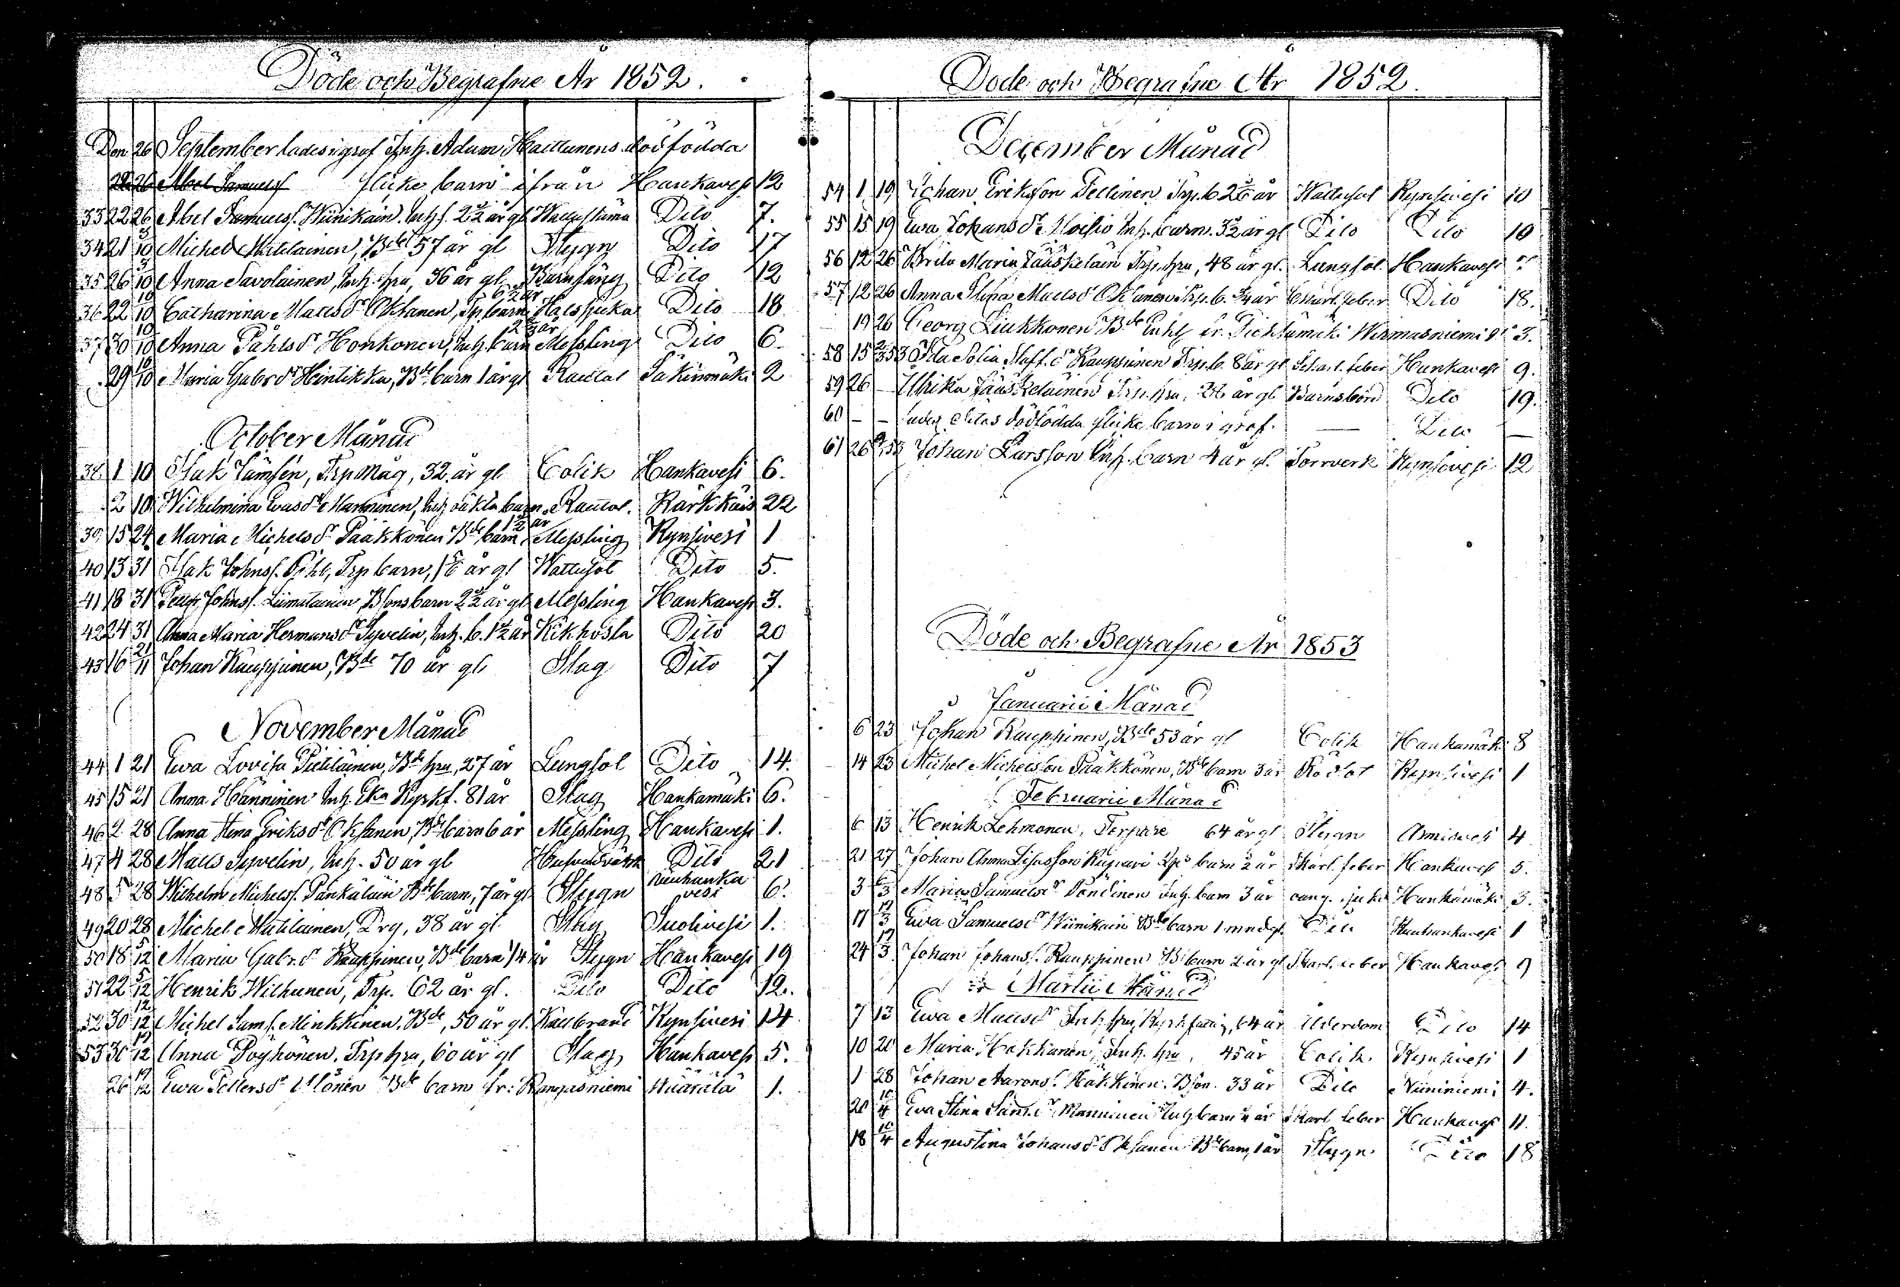 Döde och Begrafne År 1852.
Den 26 September lades i graf Inh. Adam Hactunens dödfödda
flicke barn ifrån Hankavesi 12
33 22 26 Abel Samuels. Wiinikain. Inh. s. 2 1/2 år gl Hankavesi Dito 7.
34 21 3/10 Michel Matilainen, Bde 57 år gl Stygn Dito 17
35 26 3/10 Anna Savolainen, Inh. hru, 36 år gl. Barnsäng Dito 12
36 22 10/10 Catharina Matts dr Oksanen, Trp. barn 6 1/2 år Halssjuka Dito 18
37 30 10/10 Anna Påhls dr Honkonen, Inh. barn 2 3/4 år Messling Dito 6.
29 10/10 Maria Gabr. dr Hintikka, Bde barn 1 år gl Rödsot Säkinmäki 2
October Månad
38 1 10 Isak Jämsén, Trp måg, 32 år gl Colik Hankavesi 6.
2 10 Wilhelmina Evas dr Manninen, Inh. oäkta barn Rödsot. Kärkkäis 22
39 15 24 Maria Michels dr Pääkkönen Bde barn 1 1/2 år Messling Kynsivesi 1
40 13 31 Isak Johns. Pihl, Trp barn, 1 år gl Wattusot Dito 5.
41 18 31 Johns. Liimatainen Bsons barn 2 1/2 år gl Messling Hankavesi 3.
42 24 31 Anna Maria Hermans dr Syvelin, Inh. b. 1 1/2 år Kikhosta Dito 20
43 16 21/11 Johan Kauppinen, Bde 70 år gl Slag Dito 7
November Månad
44 1 21 Ewa Lovisa Pietiläinen, Bde hru, 27 år Lungsot Dito 14.
45 15 21 Anna Hänninen Inh. Eka Kyrkf. 81 år Slag Hankamäki 6.
46 2 28 Anna Stina Eriks dr Oksanen, Bde barn 6 år Messling Hankavesi 1.
47 4 28 Matts Syvelin, Inh. 50 år gl Hufvudvärk Dito 21
48 5 28 Wilhelm Michels. Parkäläin Bde barn, 7 år gl Stygn Rauhankavesi 6.
49 20 28 Michel Matilainen, Drg, 38 år gl Slag Suolivesi 1.
50 18 5/12 Maria Gabr. dr Kauppinen, Bde barn 1/4 år Stygn Hankavesi 19
51 22 5/12 Henrik Wilhunen, Trp. 62 år gl. Dito Dito 12.
52 30 12/12 Michel Sams. Minkkinen, Bde, 50 år gl. Kallbrand Kynsivesi 14
53 30 12/12 Anna Pöyhönen. Trp hru, 60 år gl Slag Hankavesi 5.
26 19/12 Ewa Petters dr Ilönen Bde barn fr: Rampasniemi Määrälä 1.
Döde och Begrafne År 1852.
December Månad
54 1 19 Johan Eriksson Pellinen Trp. b 2 år Wattusot Kynsivesi 10
55 15 19 Ewa Johans dr Moisio Inh. barn. 3 1/2 år gl Dito Dito 10
56 12 26 Brita Maria Jääskeläin Trp. hru, 48 år gl. Lungsot Hankavesi
57 12 26 Anna Stina Matts dr Oksanen Trp. b. 3/4 år Skarl. feber Dito 18.
19 26 Georg Liukkonen Bde Enkl fr. Pieksämäki Wirmasniemi 3.
58 15 2/1 53 Ida Sofia Staff. dr Kauppinen Trp. b. 8 år gl Skarl. feber Hankavesi 9.
59 26 — Ulrika Jääskeläinen Trp. hru, 32 år gl Barnsbörd Dito 19.
60 — — lades dödfödda flicke barn i graf. — Dito —
61 26 2/1 53 Johan Larsson Inh. barn 4 år gl Torrverk Kynsivesi 12
Döde och Begrafne År 1853
Januarii Månad
6 23 Johan Kauppinen, Bde 53 år gl Colik Hankamäki 8
14 23 Michel Michelsson Pääkkönen, Bde barn 3 år Rödsot Kynsivesi 1
Februarii Månad
6 13 Henrik Lehmonen, Torpare 64 år gl Stygn Armisvesi 4
21 27 Johan Anna Lisas son Kupari Trp barn 2 år Skarl. feber Hankavesi 5.
3 6/3 Maria Samuels dr Pöndinen Inh. barn 3 år oang. sjuka Hankamäki 3.
17 13/3 Ewa Samuels dr Wiinikain Bde barn 1 mnd gl Dito Rauhankavesi 1
24 13/3 Johan Johans. Kauppinen Bde barn 2 år gl Skarl. feber Hankavesi 9
Martii Månad
7 13 Ewa Matts dr Inh. hru, Kyrkfattig, 64 år Ålderdom Dito 14
10 20 Maria Hokkanen, Inh. hru, 45 år Colik Kynsivesi 1
1 28 Johan Aarons. Häkkinen. Bson. 33 år Dito Niininiemi 4.
20 10/4 Ewa Stina Sams. dr Manninen Inh. barn 4 år Skarl feber Hankavesi 11.
18 10/4 Augustina Johans dr Oksanen Bde barn, 1 år Stygn Dito 18